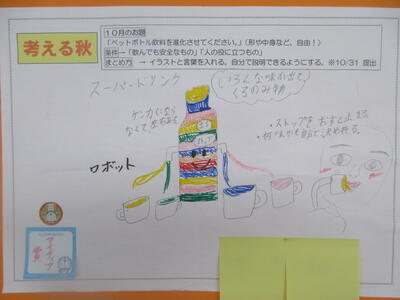 考える秋
１０月のお題
「ペットボトル飲料を進化させてください。」（形や中身など、自由！）
条件→「飲んでも安全なもの」「人の役に立つもの」
まとめ方 → イラストと言葉を入れる。自分で説明できるようにする。※10/31 提出
スーパードリンク
いろんな味が出て
くるのみ物
ケンカになら
なくて、
・ストップをおすと止まる
ストップ
ロボット
アイディア
賞